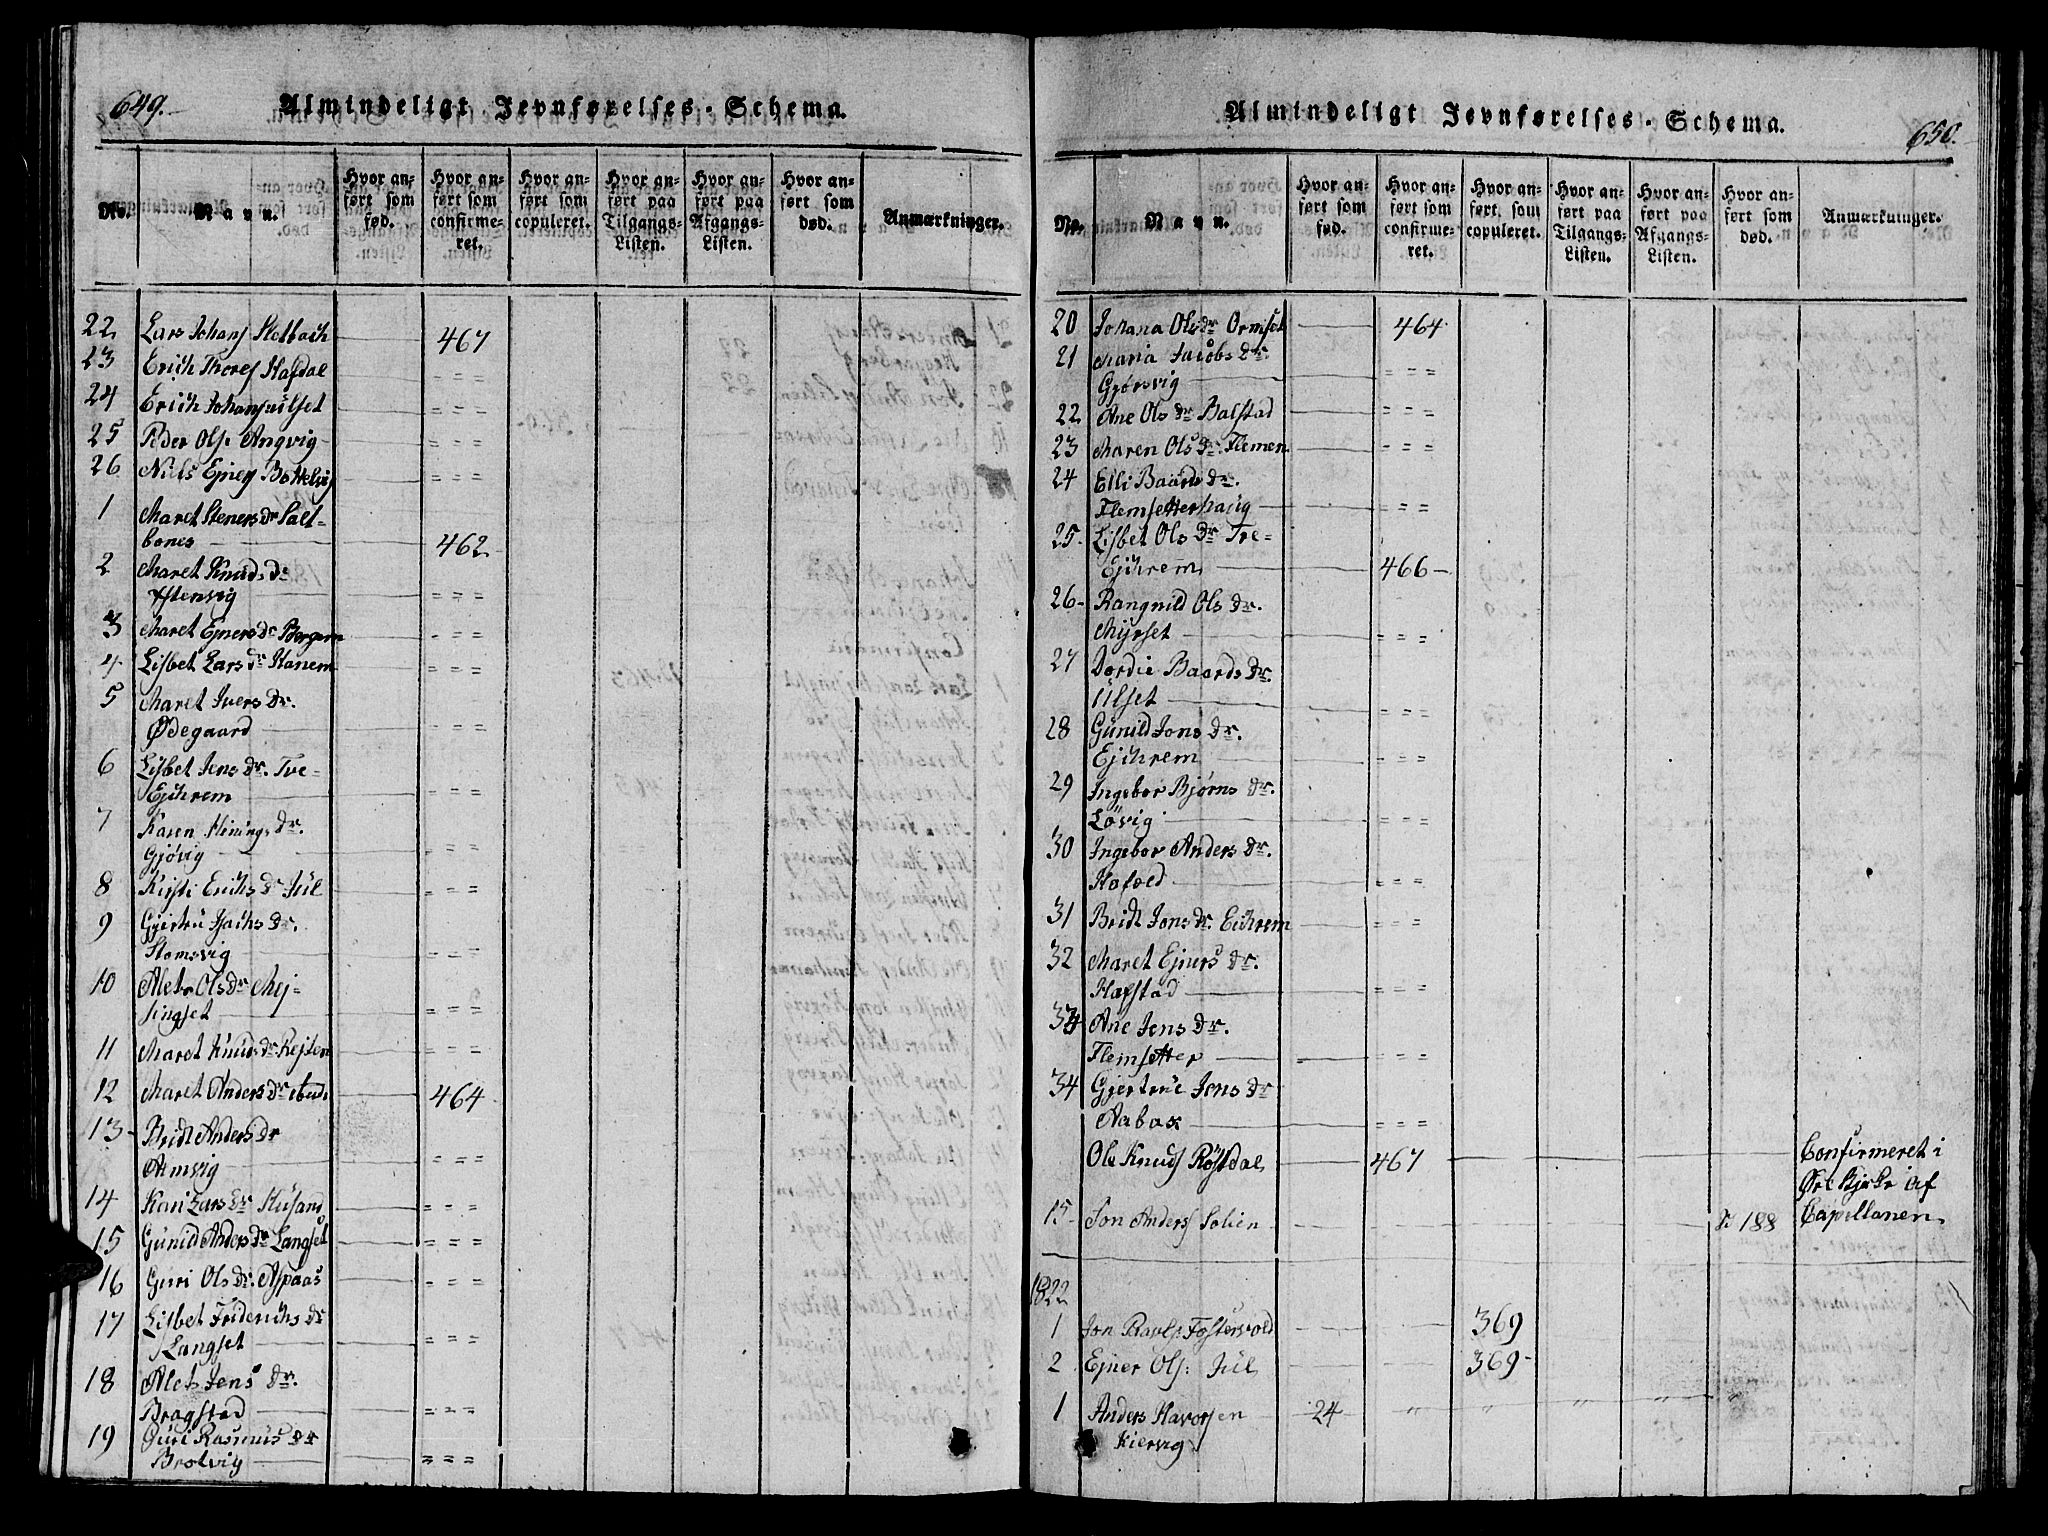 649.
Almindeligt Jevnførelses-Schema.
No. Navn. Hvor anført som fød. Hvor anført som confirmeret. Hvor anført som copuleret. Hvor anført paa Tilgangs-Listen. Hvor anført paa Afgangs-Listen. Hvor anført som død. Anmærkninger.
22 Lars Johans Sletbach 467
23 Erich Thores Hafdal = = =
24 Erich Johans Ulset = = =
25 Peder Ols: Angvig = = =
26 Niels Ejners Bottelvig = = =
1 Maret Steners Dr Salt-
bones 462
2 Maret Knuds Dr
Ystenvig = = =
3 Maret Ejners Dr Bergem = = =
4 Lisbet Lars Dr Hanem = = =
5 Maret Ivers Dr.
Ødegaard = = =
6 Lisbet Jens Dr. Tve-
Ejchrem = = =
7 Karen Henings Dr.
Gjøvig = = =
8 Kirsti Erichs Dr Jül = = =
9 Gjertru Isachs Dr.
Stomsvig = = =
10 Alet Ols Dr Mej-
singset = = =
11 Maret Knuds Dr Rejten = = =
12 Maret Anders Dr 464
13 Bridt Anders Dr
Armvig = = =
14 Kari Lars Dr Husand = = =
15 Gunild Anders Dr Langset = = =
16 Guri Ols Dr. Aspaas = = =
17 Lisbet Friderichs Dr
Langset = = =
18 Alet Jens Dr.
Bragstad = = =
19 Guri Rasmus Dr
Brotvig = = =
Almindeligt Jevnførelses-Schema.
650.
No. Navn. Hvor anført som fød. Hvor anført som confirmeret. Hvor anført som copuleret. Hvor anført paa Tilgangs-Listen. Hvor anført paa Afgangs-Listen. Hvor anført som død. Anmærkninger.
20 Johana Ols Dr Ormset 464
21 Maria Jacobs Dr.
Gjørsvig = = =
22 Ane Ols Dr Balstad = = =
23 Maren Ols Dr. Flemen = = =
24 Elli Baards Dr.
Flemsetterhaug = = =
25. Lisbet Ols Dr Tve-
Ejchrem 466
26 Rangnild Ols Dr.
Myrset = = =
27 Dordie Baards Dr.
Ulset = = =
28 Gunild Jons Dr.
Ejchrem = = =
29 Ingebor Bjørns Dr.
Løvig = = =
30 Ingebor Anders Dr.
Hafold = = =
31 Bridt Jons Dr. Eichrem = = =
32 Maret Ejners Dr.
Hafstad = = =
33 Ane Jens Dr.
Flemsetter = = =
34 Gjertrue Jens Dr
Aabox = = =
Ole Knuds Røstdal 467 Confirmeret i
Øre Kjerke af
Capellanen
15 Jon Anders Solien 188
1822
1 Jon Ravls: Fostervold 369
2 Ejner Ols: Jül 369
1 Anders Havorsen 24 " " " " "
Kiervig